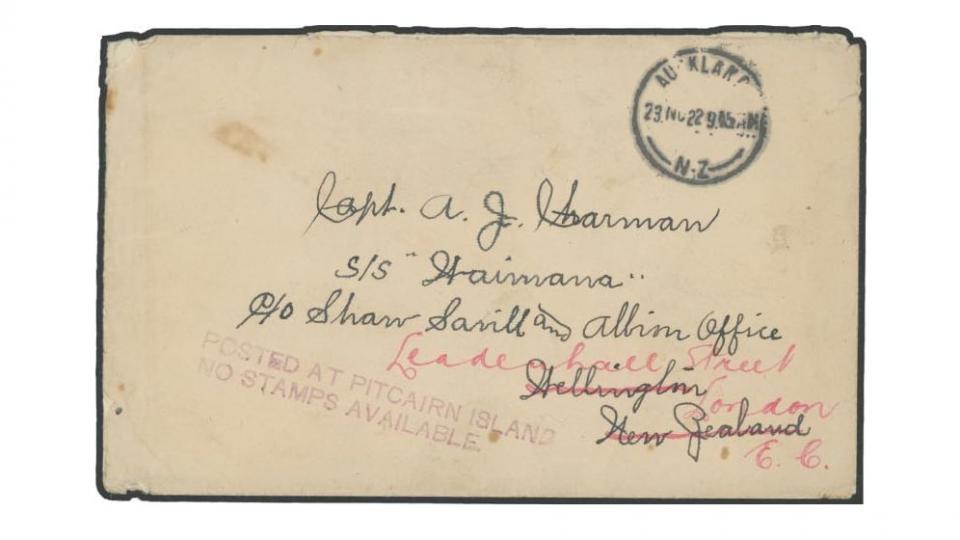 AUCKLAND
23.NO.22 9.15 AM
N.Z.
Capt. A. J. Harman
S/S "Waimana"
C/o Shaw Savill and Albion Office
Leadenhall Street
Wellington
London
New Zealand
E. C.
POSTED AT PITCAIRN ISLAND
NO STAMPS AVAILABLE